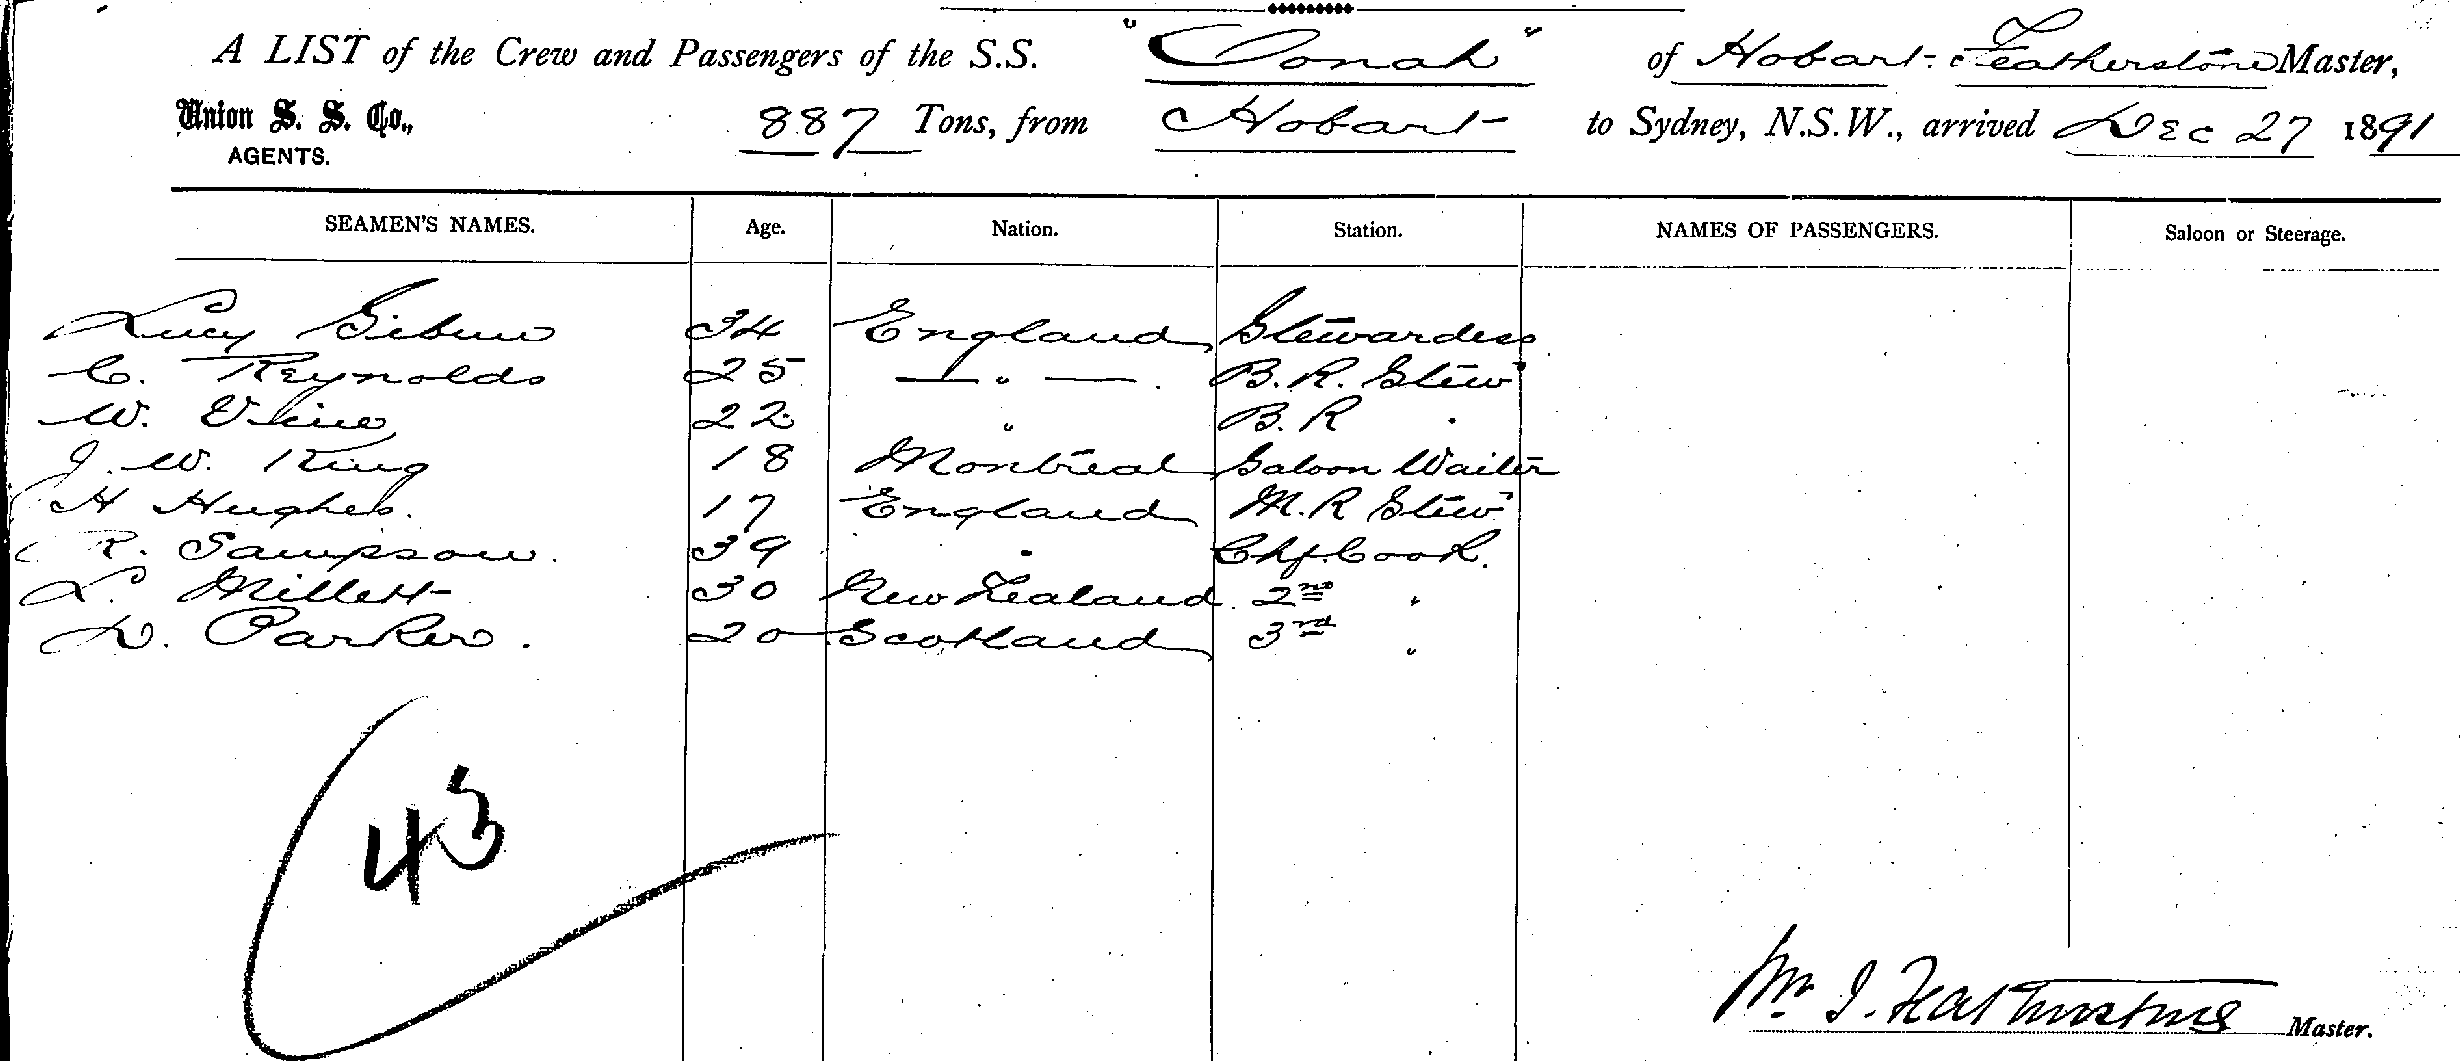 A LIST of the Crew and Passengers of the S.S. "Oonah" of Hobart. Featherstone Master,
Union S. S. Co., 887 Tons, from Hobart to Sydney, N.S.W., arrived Dec 27 1891
AGENTS.
SEAMEN'S NAMES. Age. Nation. Station. NAMES OF PASSENGERS. Saloon or Steerage.
Lucy 34 England Stewardess
C. Reynolds 25 — " — B. R. Stew
W. Vine 22 " B. R "
J. W. King 18 Montreal Saloon Waiter
H Hughes. 17 England M. R Stew
R. Sampson. 39 " Chf. Cook.
L. Millett 30 New Zealand 2nd "
D. Parker. 20 Scotland 3rd "
43
Wm J. Featherstone Master.